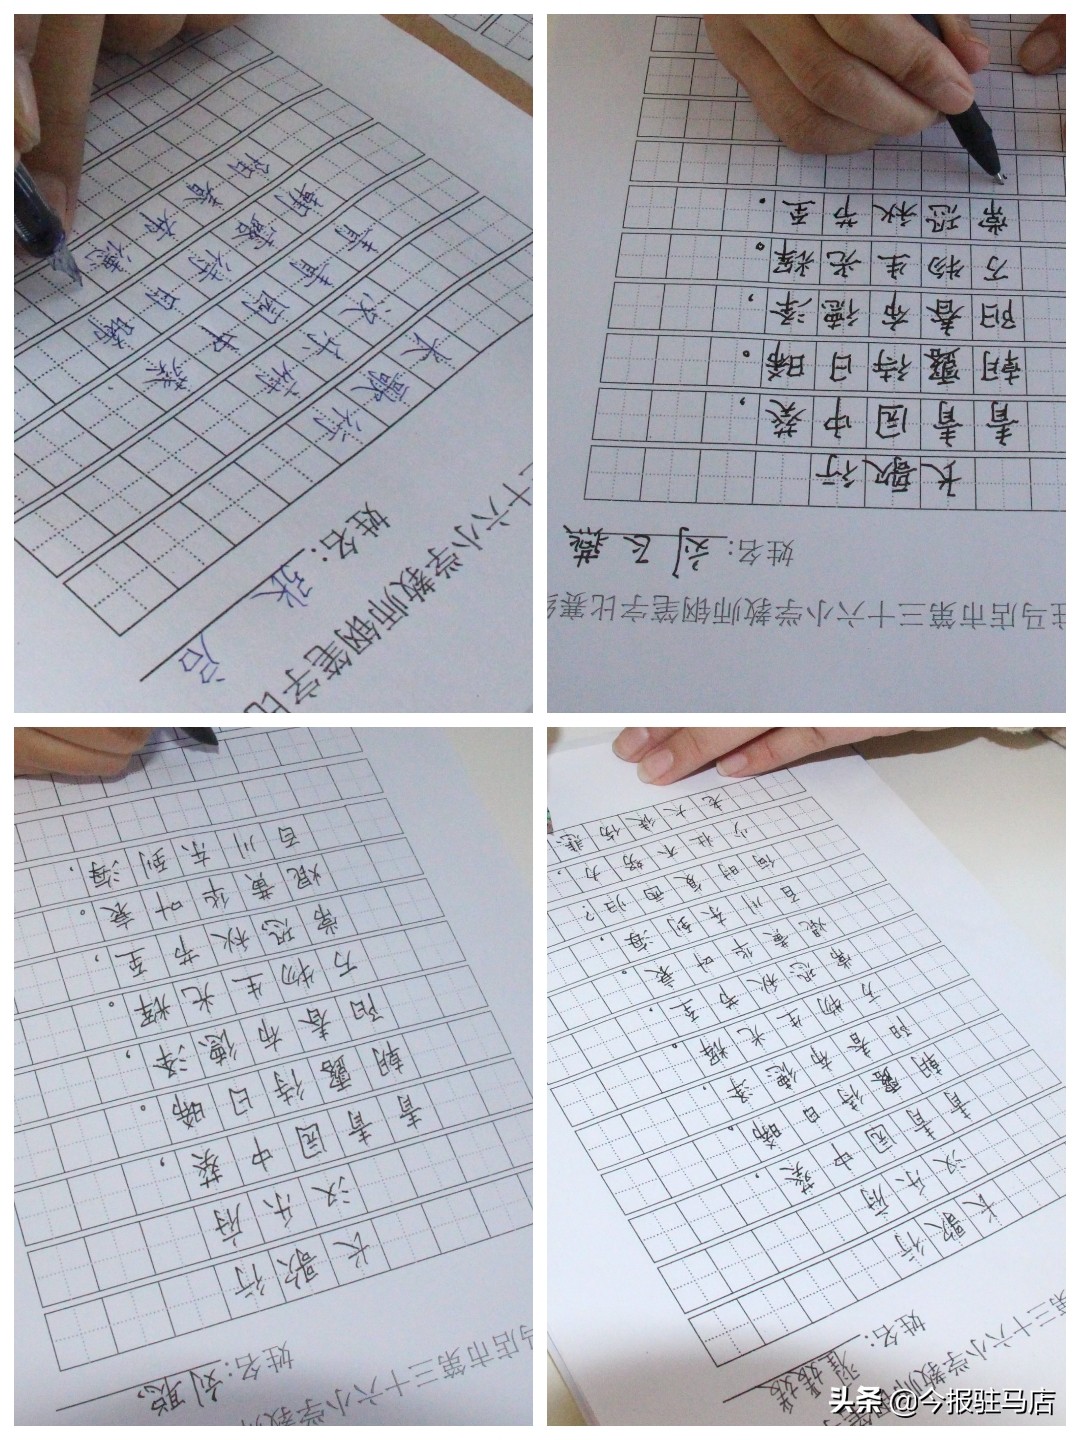 十六小学教师钢笔字比
姓名：张
长歌行
汉乐府
青青园中葵，
朝露待日晞
阳春布德
驻马店市第三十六小学教师钢笔字比赛
姓名：刘飞燕
长歌行
青青园中葵，
朝露待日晞。
阳春布德泽，
万物生光辉。
常恐秋节至，
马店市第三十六小学教师
姓名：刘聪
长歌行
汉乐府
青青园中葵，
朝露待日晞。
阳春布德泽，
万物生光辉。
常恐秋节至，
焜黄华叶衰。
百川东到海，
第三十六小学教师钢笔字
姓名：
长歌行
汉乐府
青青园中葵，
朝露待日晞。
阳春布德泽，
万物生光辉。
常恐秋节至，
焜黄华叶衰。
百川东到海，
何时复西归？
少壮不努力，
老大徒伤悲
头条 @今报驻马店